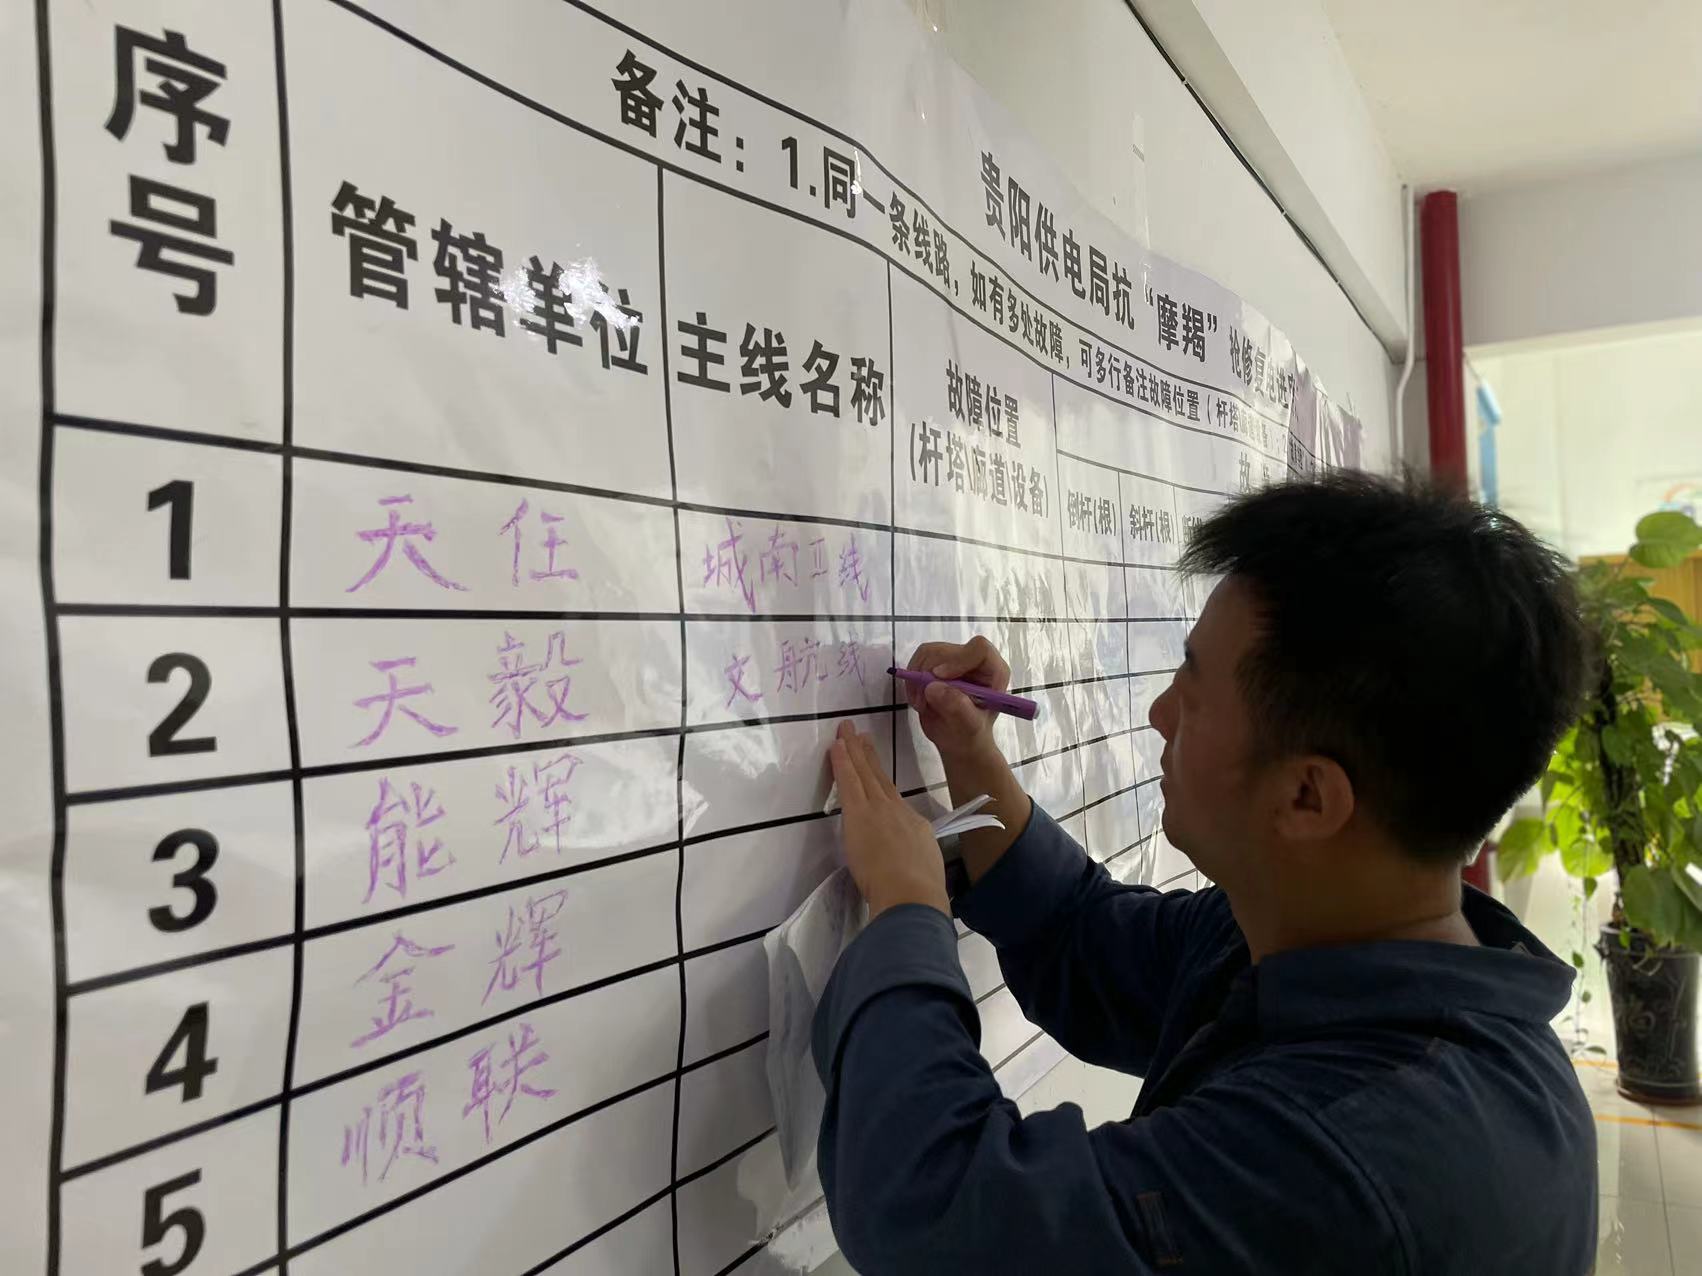 贵阳供电局抗“摩羯”抢修复电进
备注：1.同一条线路，如有多处故障，可多行备注故障位置（杆塔\廊道\设备）；2
序号
管辖单位
主线名称
故障位置
(杆塔\廊道\设备)
故
倒杆(根)
斜杆(根)
1 天任 城南Ⅱ线
2 天毅 文航线
3 能辉
4 金辉
5 顺联